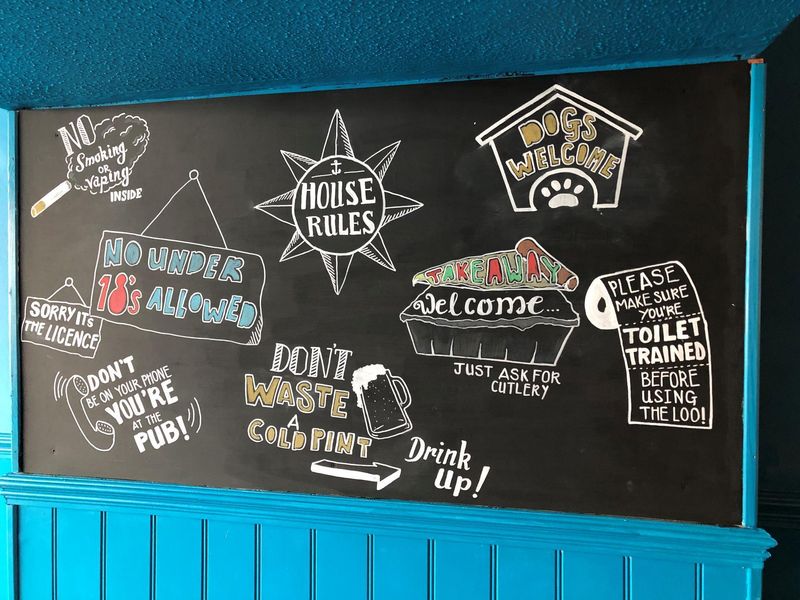 NO
Smoking
OR
Vaping
INSIDE
HOUSE
RULES
DOGS
WELCOME
NO UNDER
18's ALLOWED
SORRY ITS
THE LICENCE
TAKEAWAY
Welcome...
JUST ASK FOR
CUTLERY
PLEASE
MAKE SURE
YOU'RE
TOILET
TRAINED
BEFORE
USING
THE LOO!
DON'T
BE ON YOUR PHONE
YOU'RE
AT THE
PUB!
DON'T
WASTE
A
COLD PINT
Drink
up!